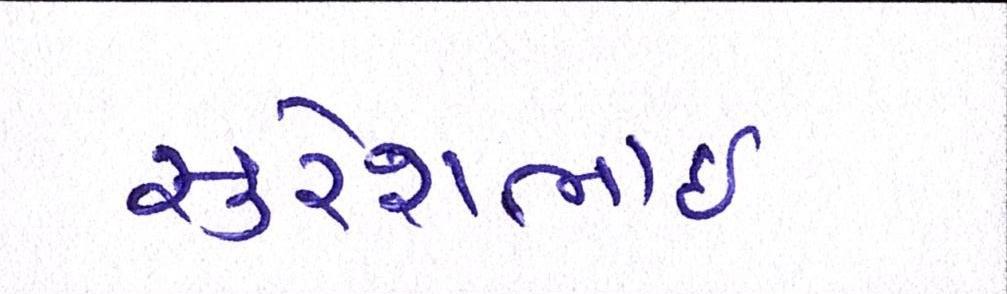 સુરેશભાઇ